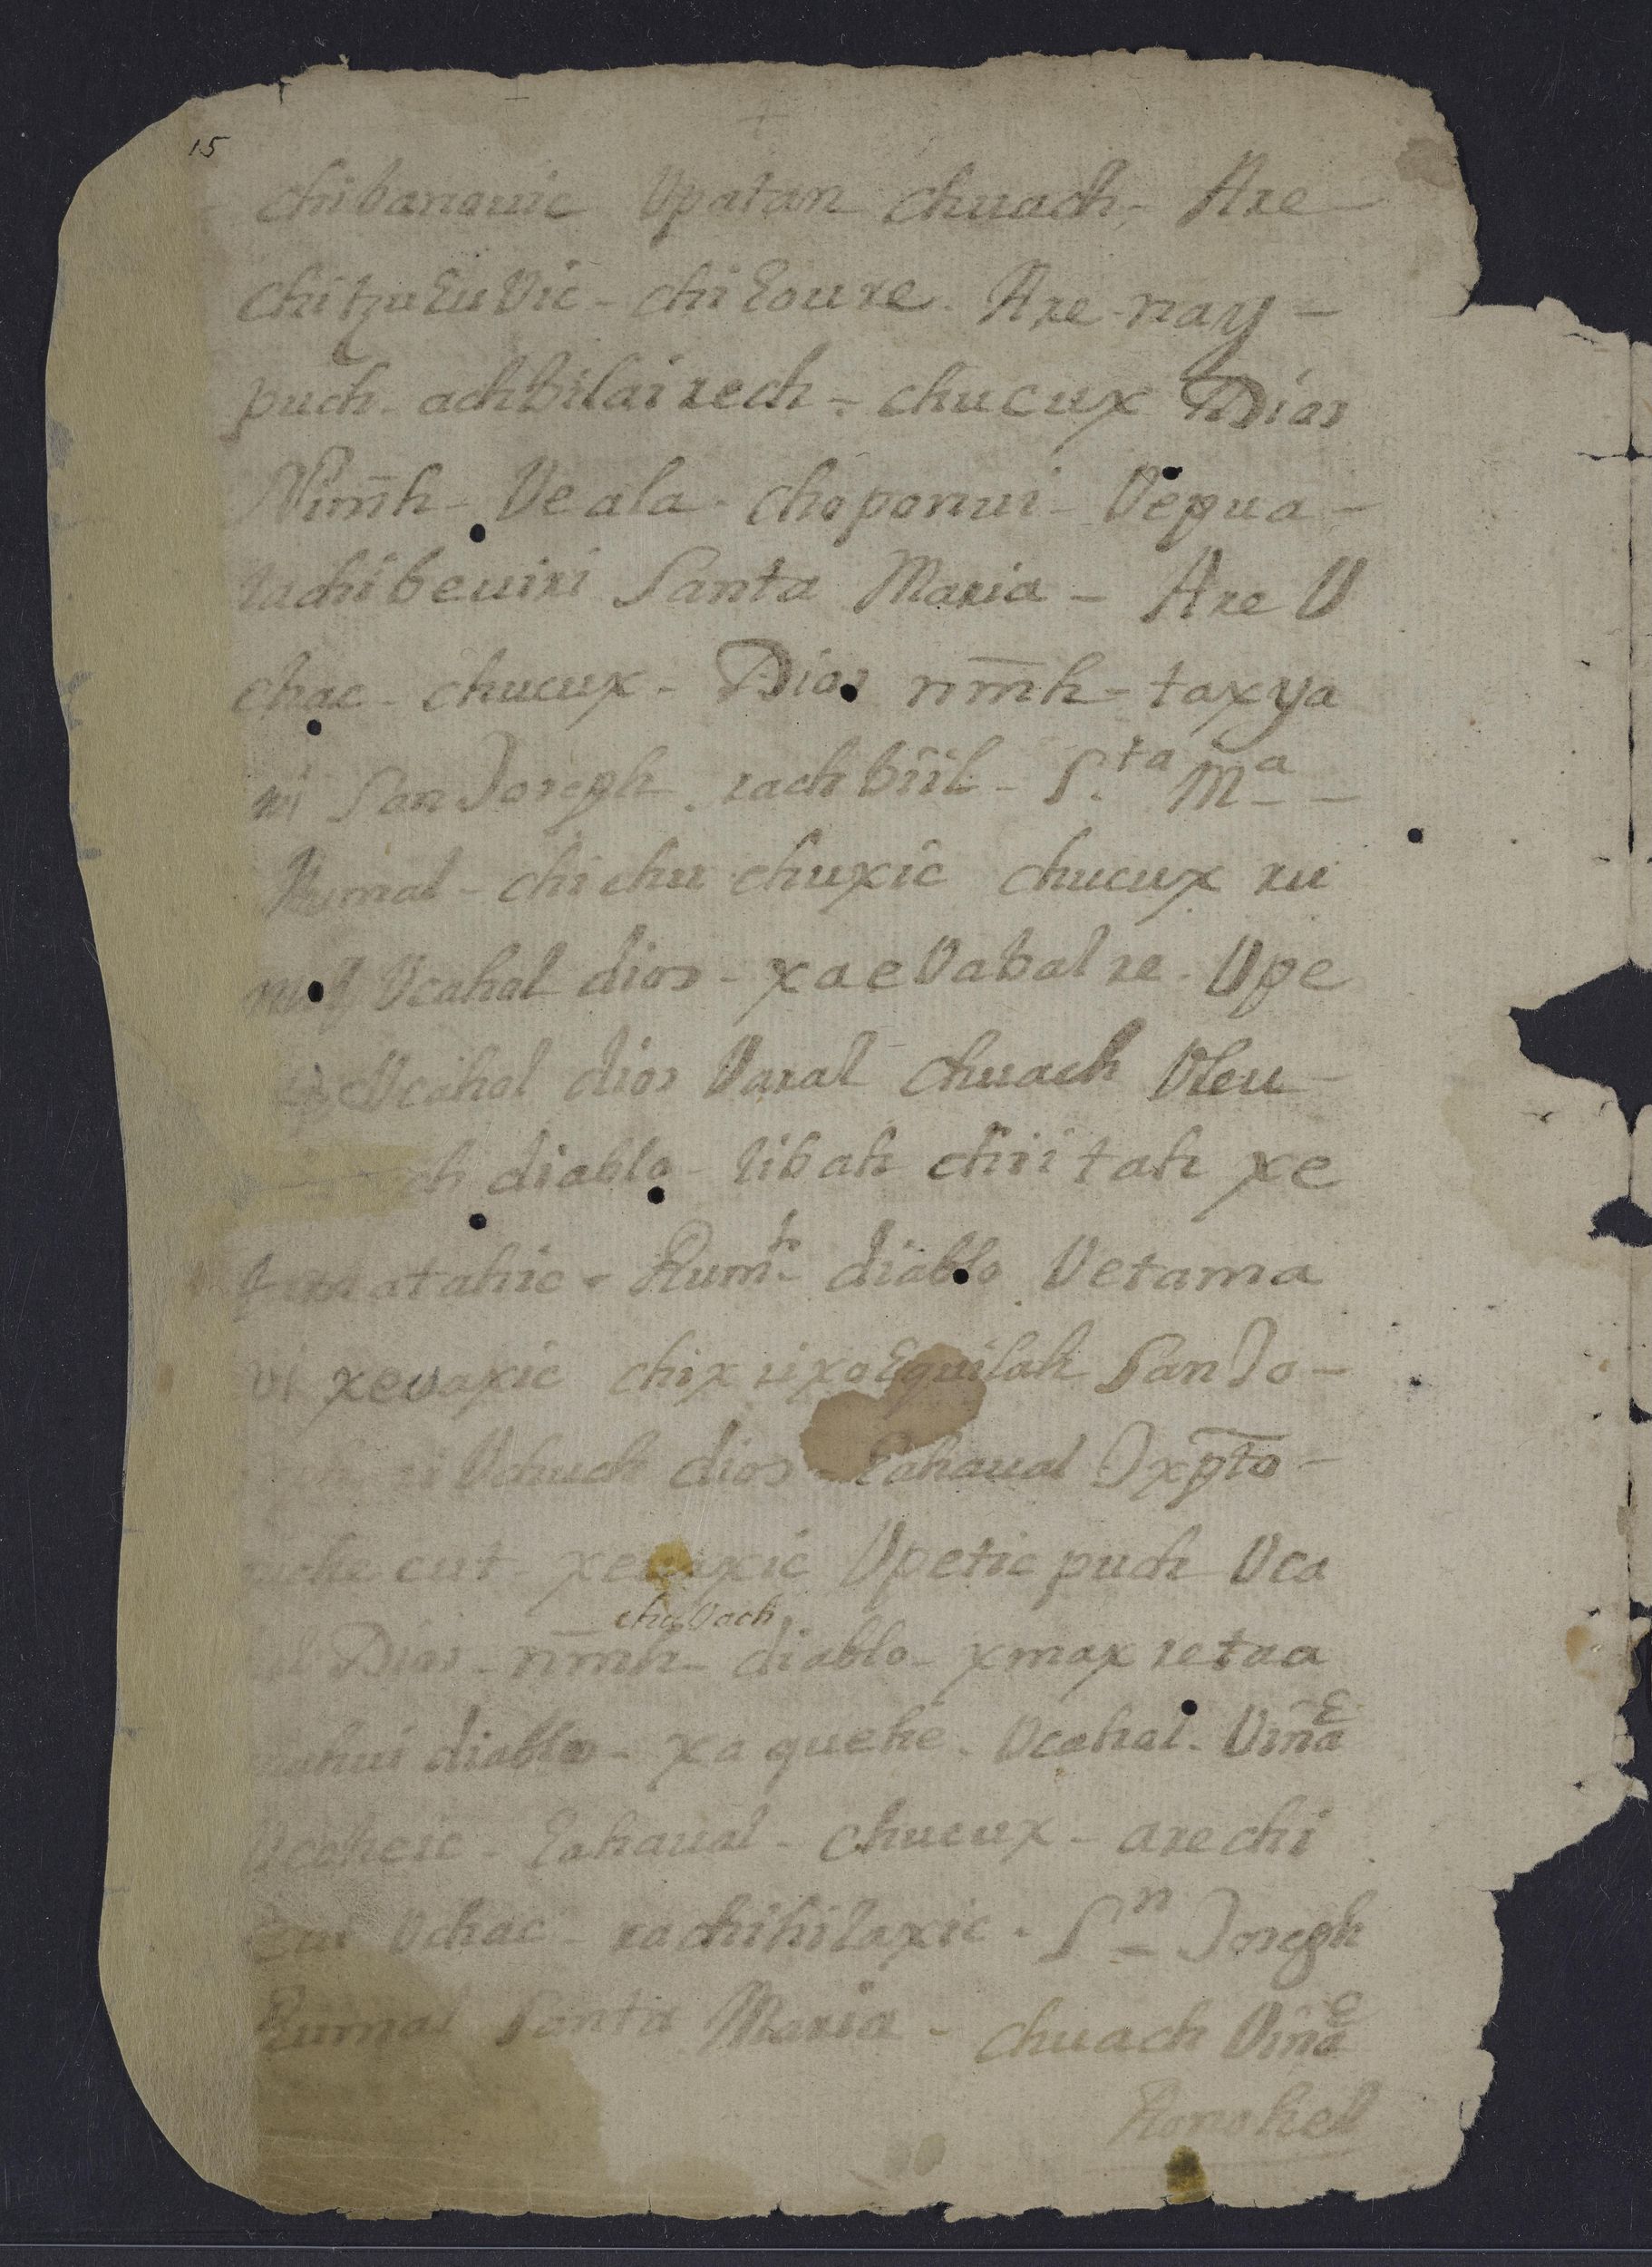 15
chibanouic Vpatan chuach - Are
chitzuɛu Vic - chi ɛoure. Are-nay -
puch - achbilai rech - chucux Dios
Nim̄h - Ve ala - choponui - Vepua -
rachibeuixi Santa Maria - Are V
chac - chucux - Dios nm̄h - taxya
ui San Joseph. rachbiil - S.ta Ma - -
Rumal - chi chu chuxic chucux ru
Vcahol dios - xaeVabal re. Vpe
Vcahol dios Varal chuach Vleu -
ch diablo - ribah chiitah xe
atahic - Rum.l diablo Vetama
ui xeuaxic chix rixoɛquilah San Jo -
Vchuch dios - ɛahaual Jxpt̄o -
quehe cut - xeuaxic Vpetic puch Vca
hol Dios - nm̄h - chuVach diablo - xmax retaa
mahui diablo - xa quehe. Vcahol. Vinaɛ
Vcoheic - ɛahaual - chucux - arechi
Vchac - rachihilaxic. Sn - Joseph
Rumal Santa Maria - chuach Vinaɛ
Ronohel